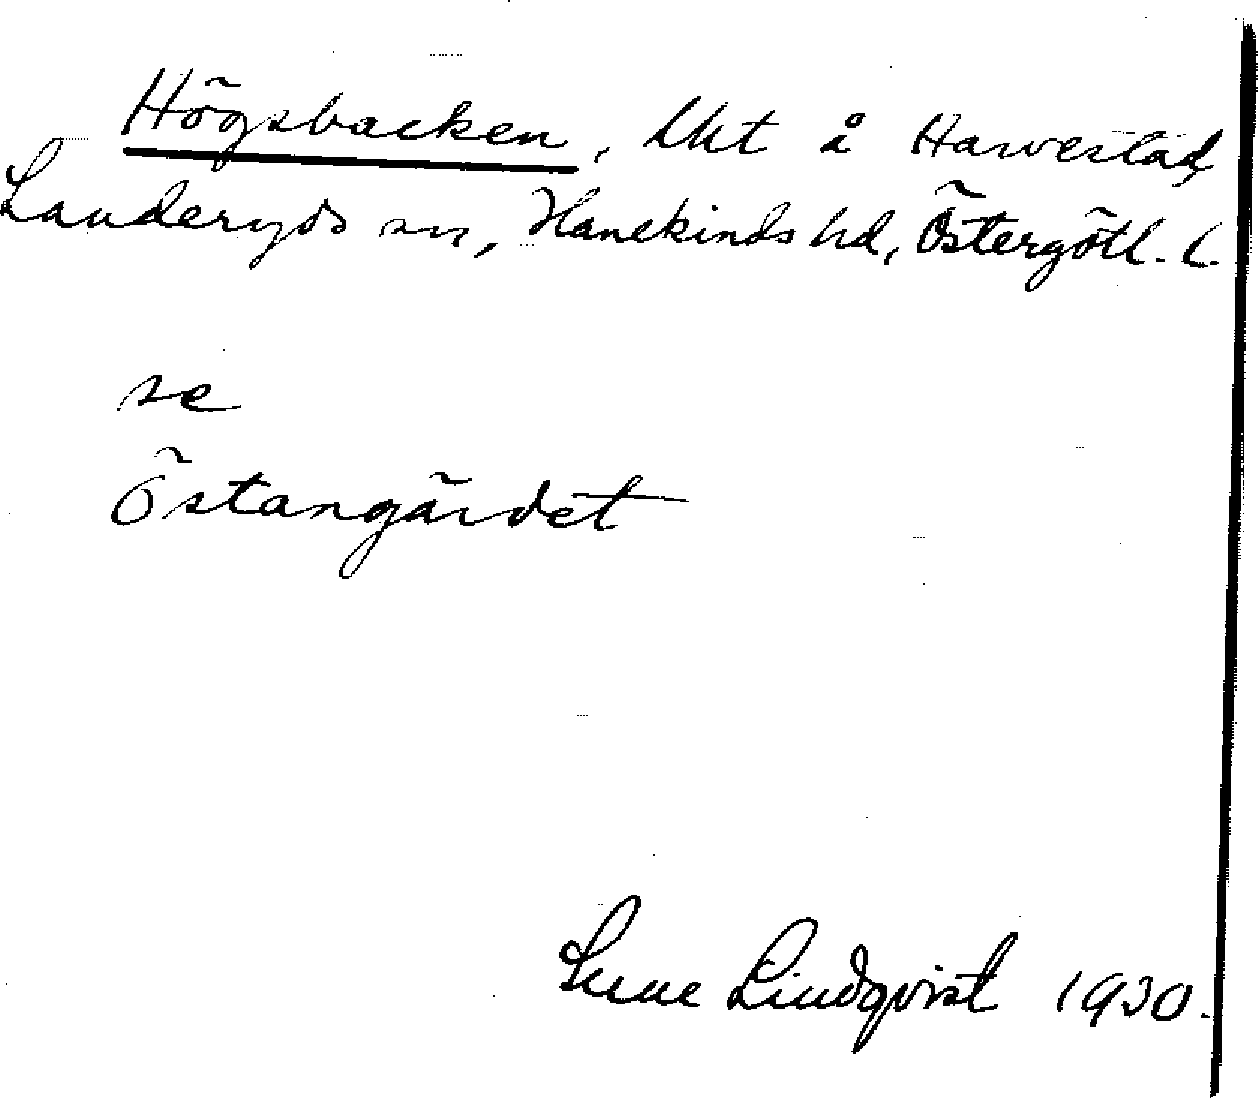 Högsbacken, Ukt å Harvestad,
Landeryds sn, Hanekinds hd, Östergötl. l.
se
Östangärdet
Sune Lindqvist 1930.